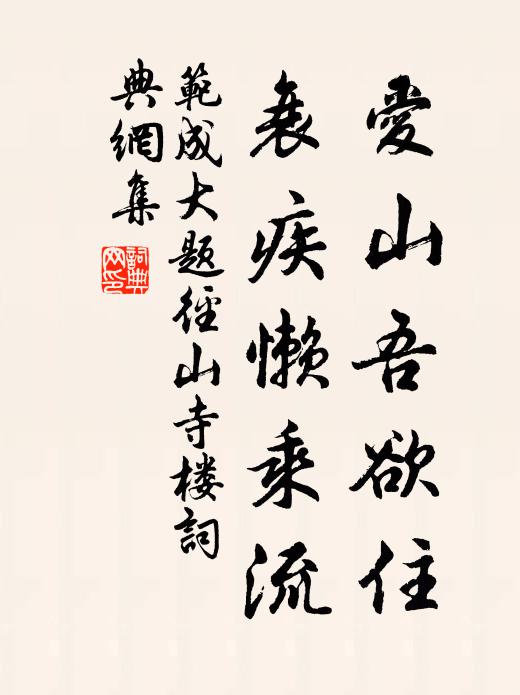 愛山吾欲住
衰疾懶乘流
範成大題徑山寺楼詞
典網集
詞典
网印